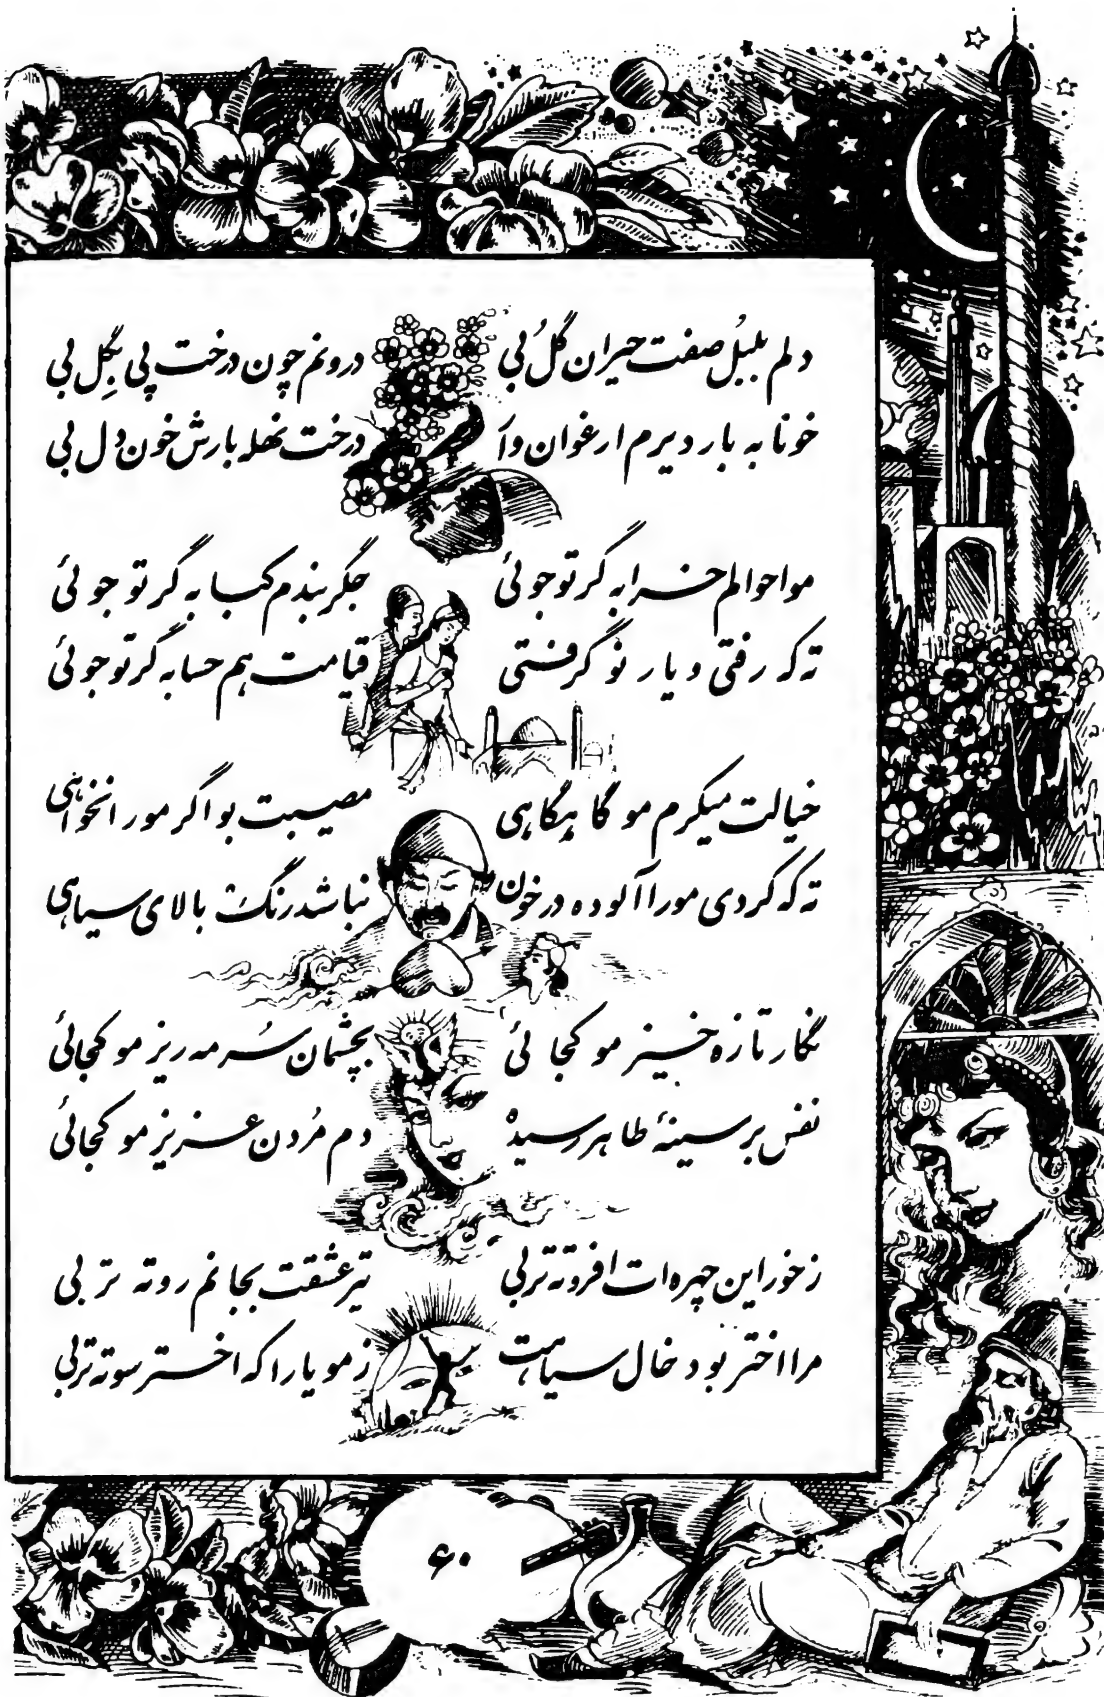 دلم بلبل صفت حیران گلُ بی درونم چون درخت پی بگِل بی
خونابه بار دیرم ارغوان وآ درخت نهله بارش خون دل بی
مو احوالم خرابه گر تو جوئی جگر بندم کبابه گر تو جوئی
ته که رفتی و یار نو گرفتی قیامت هم حسابه گر تو جوئی
خیالت میکرم مو گاهگاهی مصیبت بو اگر مو را نخواهی
ته که کردی مورا آلوده در خون نباشد رنگ بالای سیاهی
نگار تازه خیز مو کجائی بچشمان سُرمه ریز مو کجائی
نفس بر سینهٔ طاهر رسیده دم مُردن عزیز مو کجائی
ز خور این چهره ات افروته تر بی تیر عشقت بجانم روته تر بی
مرا اختر بود خال سیاهت ز مو یارا که اختر سوته تر بی
۶۰